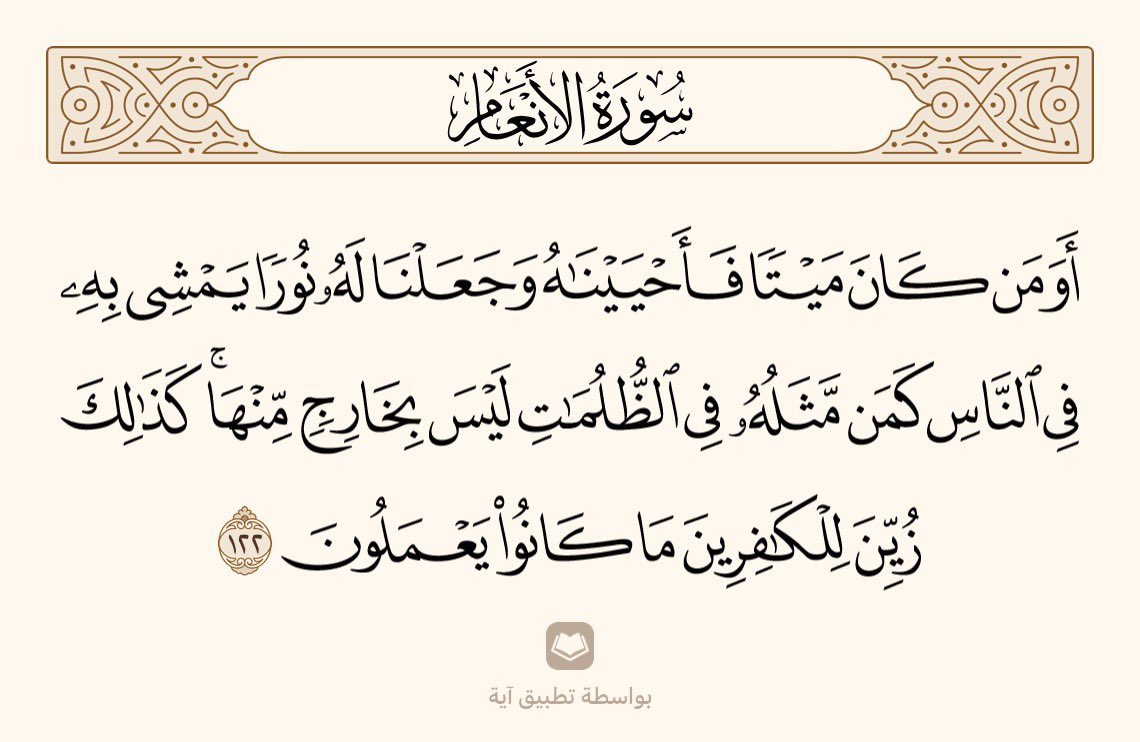 سُورَةُ الأَنْعَامِ
أَوَمَن كَانَ مَيْتًا فَأَحْيَيْنَٰهُ وَجَعَلْنَا لَهُۥ نُورًا يَمْشِى بِهِۦ
فِى ٱلنَّاسِ كَمَن مَّثَلُهُۥ فِى ٱلظُّلُمَٰتِ لَيْسَ بِخَارِجٍ مِّنْهَا ۚ كَذَٰلِكَ
زُيِّنَ لِلْكَٰفِرِينَ مَا كَانُوا۟ يَعْمَلُونَ ١٢٢
بواسطة تطبيق آية